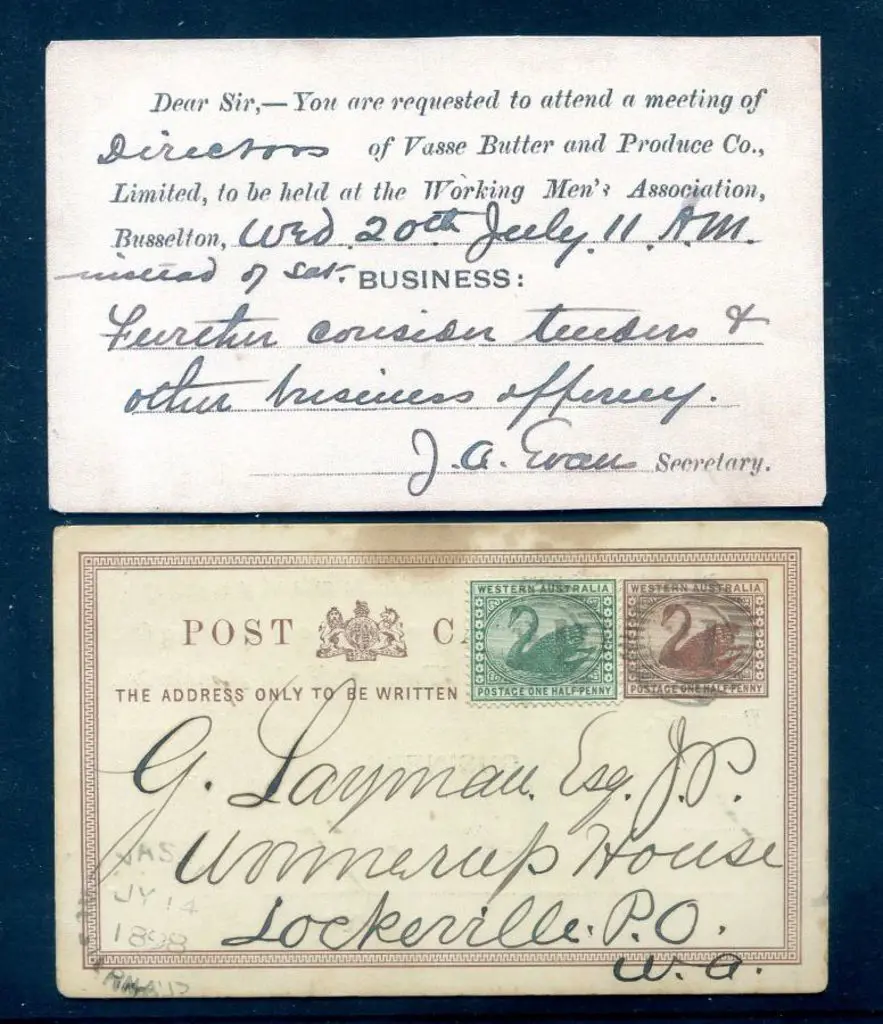 Dear Sir,—You are requested to attend a meeting of
Directors of Vasse Butter and Produce Co.,
Limited, to be held at the Working Men's Association,
Busselton, Wed. 20th July 11 A.M.
instead of Sat. BUSINESS:
Further consider tenders &
other business offering.
J. A. Evans Secretary.
WESTERN AUSTRALIA WESTERN AUSTRALIA
POST CA
POSTAGE ONE HALF-PENNY POSTAGE ONE HALF-PENNY
THE ADDRESS ONLY TO BE WRITTEN
G. Layman. Esq. J.P.
Wonnerup House
Lockeville. P.O.
W. A.
VAS
JY 14
1898